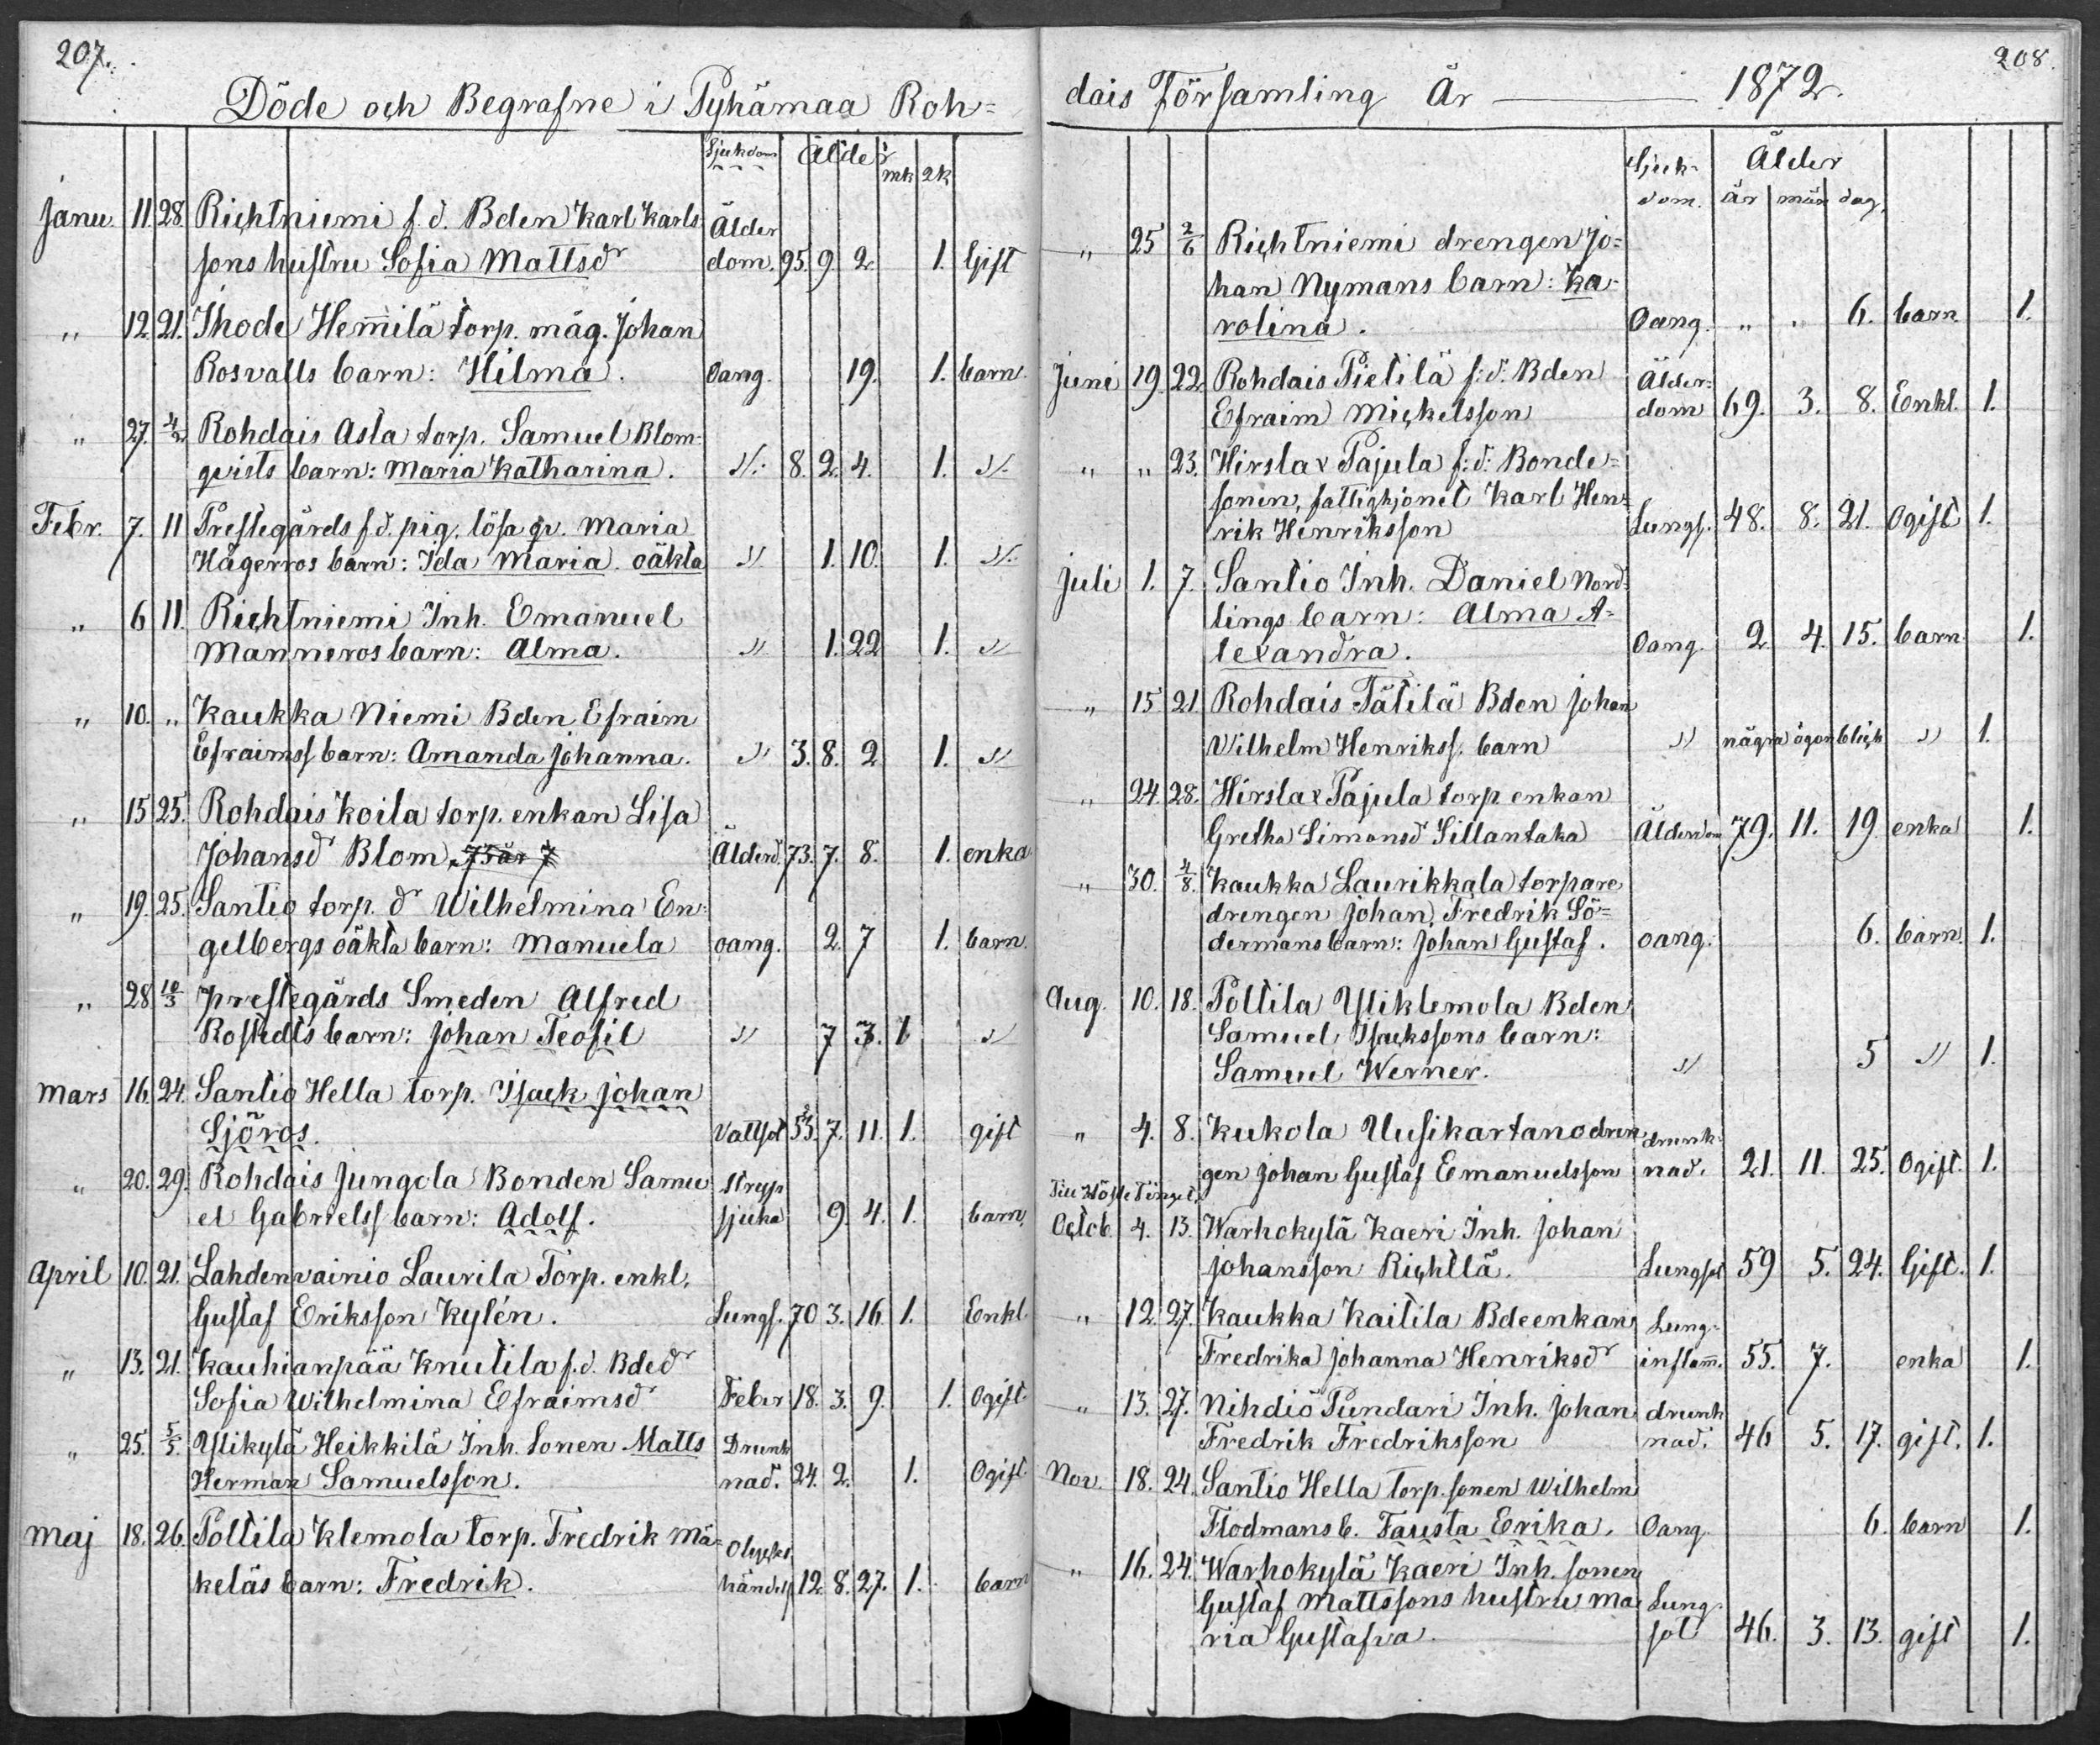 207.
Döde och Begrafne i Pyhämaa Roh=
Sjukdom Ålder
mk qk
Janu 11. 28. Richtniemi f. d. Bden Karl Karls Ålder
sons hustru Sofia Mattsdr dom. 95. 9. 2 1. Gift
" 12. 21. Ihode Hemmilä torp. måg. Johan
Rosvalls barn: Hilma. Oang. 19. 1. barn.
" 27. 4/2 Rohdais Asla torp. Samuel Blom-
qvists barn: Maria Katharina. " 8. 2. 4. 1. "
Febr. 7. 11 Prestegårds f. d. pig. lösa qv. Maria
Hägerros barn: Ida Maria. oäkta " 1. 10. 1. "
" 6 11. Richtniemi Inh. Emanuel
Manneros barn: Alma. " 1. 22 1. "
" 10. " Kaukka Niemi Bden Efraim
Efraimss barn: Amanda Johanna. " 3. 8. 2 1. "
" 15 25. Rohdais Koila torp. enkan Lisa
Johansd Blom, 73 år 7 Ålderd. 73. 7. 8. 1. enka
" 19. 25. Santio torp. dr Wilhelmina En-
gelbergs oäkta barn: Manuela oang. 2. 7 1. barn.
" 28 10/3 prestegårds Smeden Alfred
Rostedts barn: Johan Teofil " 7 3. 1 "
Mars 16. 24. Santio Hella torp. Isack Johan
Sjöros. Vattsot 53. 7. 11. 1. gift
" 20. 29. Rohdais Jungola Bonden Samu Stryp
el Gabrielss barn: Adolf. sjuka 9. 4. 1. barn.
April 10. 21. Lahdenvainio Laurila Torp. enkl.
Gustaf Eriksson Kylén. Lungs. 70 3. 16 1. Enkl.
" 13. 21. Kauhianpää Knutila f. d. Bdedr
Sofia Wilhelmina Efraimsdr Feber 18. 3. 9. 1. Ogift.
" 25. 5/5 Ylikylä Heikkilä Inh. Sonen Matts Drunk
Herman Samuelsson. nad. 24. 2. 1. Ogift.
Maj 18. 26. Polttila Klemola torp. Fredrik Mä= Olycks
keläs barn: Fredrik. händels 12. 8. 27. 1. barn
208.
dais Församling År 1872.
Sjuk- Ålder
dom. år mån dag.
" 25 2/6 Richtniemi drengen Jo=
han Nymans barn: Ka-
rolina. Oang. " " 6. barn 1.
Juni 19 22. Rohdais Pietilä f: d. Bden Ålder=
Efraim Mickelsson dom 69. 3. 8. Enkl. 1.
" " 23. Hirslax Pajula f: d: Bonde=
sonen, fattighjonet Karl Hen=
rik Henriksson Lungs. 48. 8. 21. Ogift 1.
Juli 1. 7. Santio Inh. Daniel Nord-
lings barn: Alma A=
lexandra. Oang. 2 4. 15. barn 1.
" 15 21. Rohdais Tätilä Bden Johan
Wilhelm Henrikss. barn " några ögonblick " 1.
" 24. 28. Hirslax Pajula torp enkan
Gretha Simonsd Sillantaka Ålderdom 79. 11. 19. enka 1.
" 30. 4/8 Kaukka Laurikkala torpare
drengen Johan Fredrik Sö=
dermans barn: Johan Gustaf. oang. 6. barn. 1.
Aug. 10. 18. Polttila Yliklemola Bden
Samuel Isackssons barn:
Samuel Werner. " 5 " 1.
" 4. 8. Kukola Uusikartano dren drunk-
gen Johan Gustaf Emanuelsson nad. 21. 11. 25. Ogift. 1.
Till Höste Tinget.
Octob. 4. 13. Warhokylä Kaeri Inh. Johan
Johansson Richtlä. Lungsot 59 5. 24. Gift. 1.
" 12. 27. Kaukka Kaitila Bdeenkan Lung-
Fredrika Johanna Henriksdr inflamm. 55. 7. enka 1.
" 13. 27. Nihdiö Pundari Inh. Johan drunk
Fredrik Fredriksson nad. 46 5. 17. gift. 1.
Nov. 18. 24. Santio Hella torp. sonen Wilhelm
Flodmans b. Fausta Erika. Oang. 6. barn 1.
" 16. 24. Warhokylä Kaeri Inh. sonen
Gustaf Mattssons hustru Ma Lung
ria Gustafva. sot 46. 3. 13. gift 1.